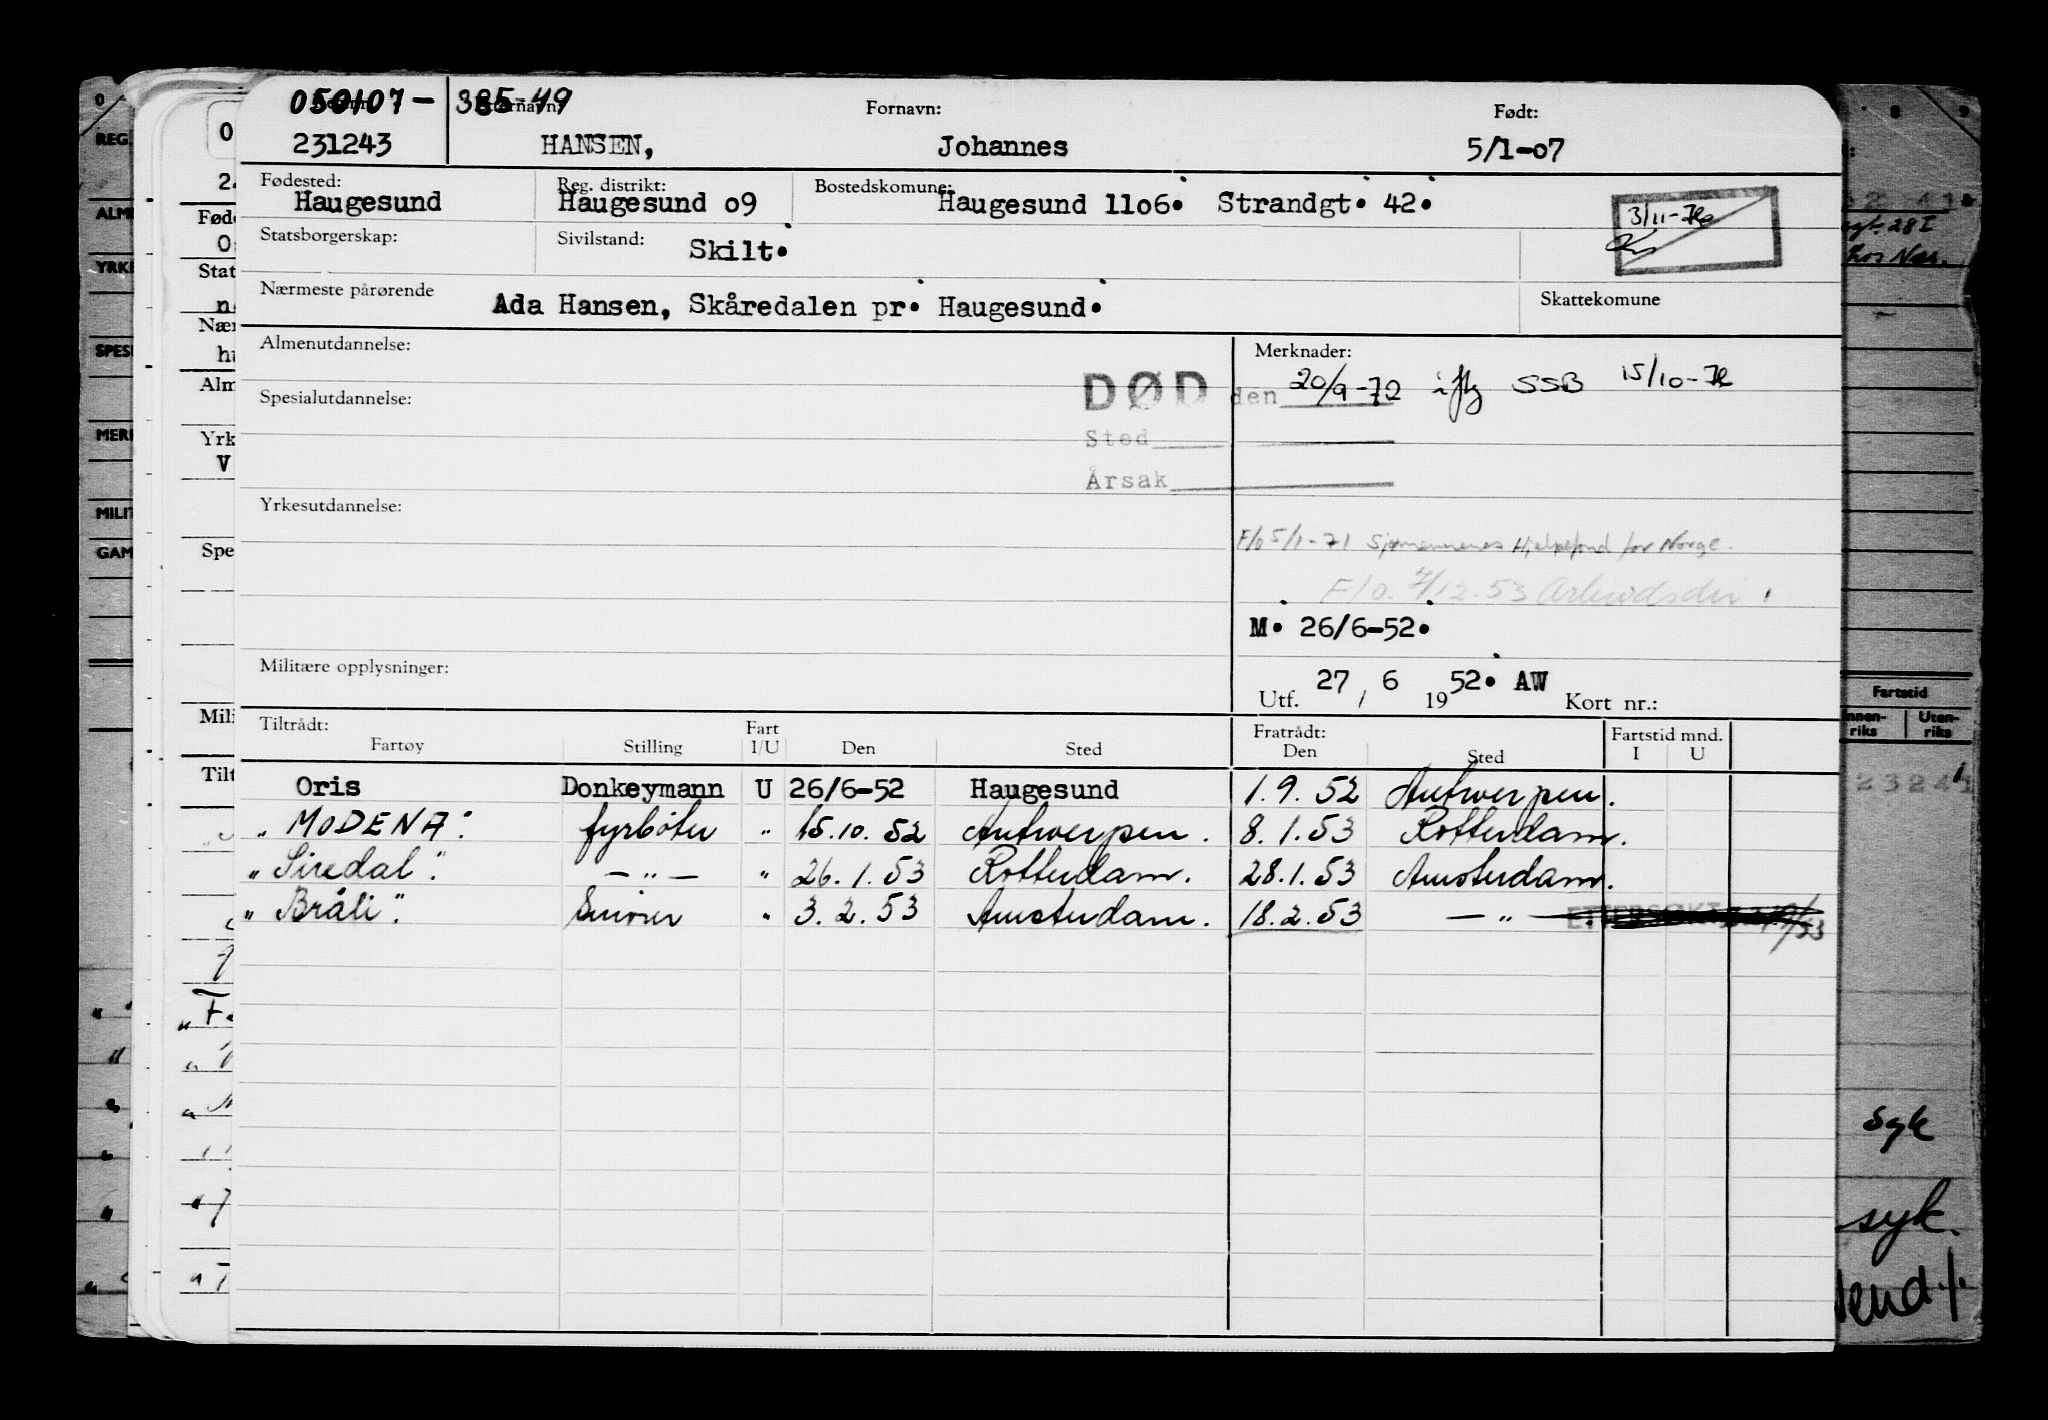 050107- 385-49
231243
Fornavn:
Født:
HANSEN, Johannes 5/1-07
Fødested: Reg. distrikt: Bostedskomune:
Haugesund Haugesund o9 Haugesund 11o6. Strandgt. 42.
Statsborgerskap: Sivilstand: Skilt.
3/11-72
Nærmeste pårørende Ada Hansen, Skåredalen pr. Haugesund.
Skattekomune
Almenutdannelse:
Merknader:
DØD den 20/9-72 iflg SSB 15/10-72
Spesialutdannelse:
Sted
Årsak
Yrkesutdannelse:
F/o 5/1-71 Sjømennenes Hjelpefond for Norge.
F/o. 7/12.53 Arbeidsdir.
M. 26/6-52.
Militære opplysninger:
Utf. 27 / 6 1952. AW Kort nr.:
Tiltrådt: Fratrådt: Fartstid mnd.
Fartøy Stilling Fart I/U Den Sted Den Sted I U
Oris Donkeymann U 26/6-52 Haugesund 1.9.52 Antwerpen.
"MODENA". fyrbøter " 15.10.52 Antwerpen. 8.1.53 Rotterdam.
"Siredal". — " — " 26.1.53 Rotterdam. 28.1.53 Amsterdam.
"Bråli". Smører " 3.2.53 Amsterdam. 18.2.53 — " —
REG.
ALM
YRKE
SPESI
MERK
MILIT
GAM
Stat
Alm
Yrk
V
Spe
Mili
Tilt
8 9
Fartstid
Innen-riks Uten-riks
23241
syk
syk.
Vend!